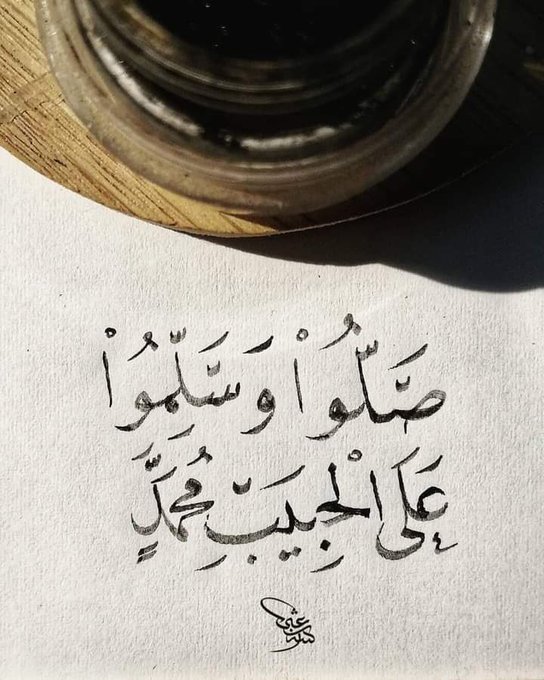 صَلُّواْ وَسَلِّمُواْ
عَلَى الْحَبِيبِ مُحَمَّدٍ